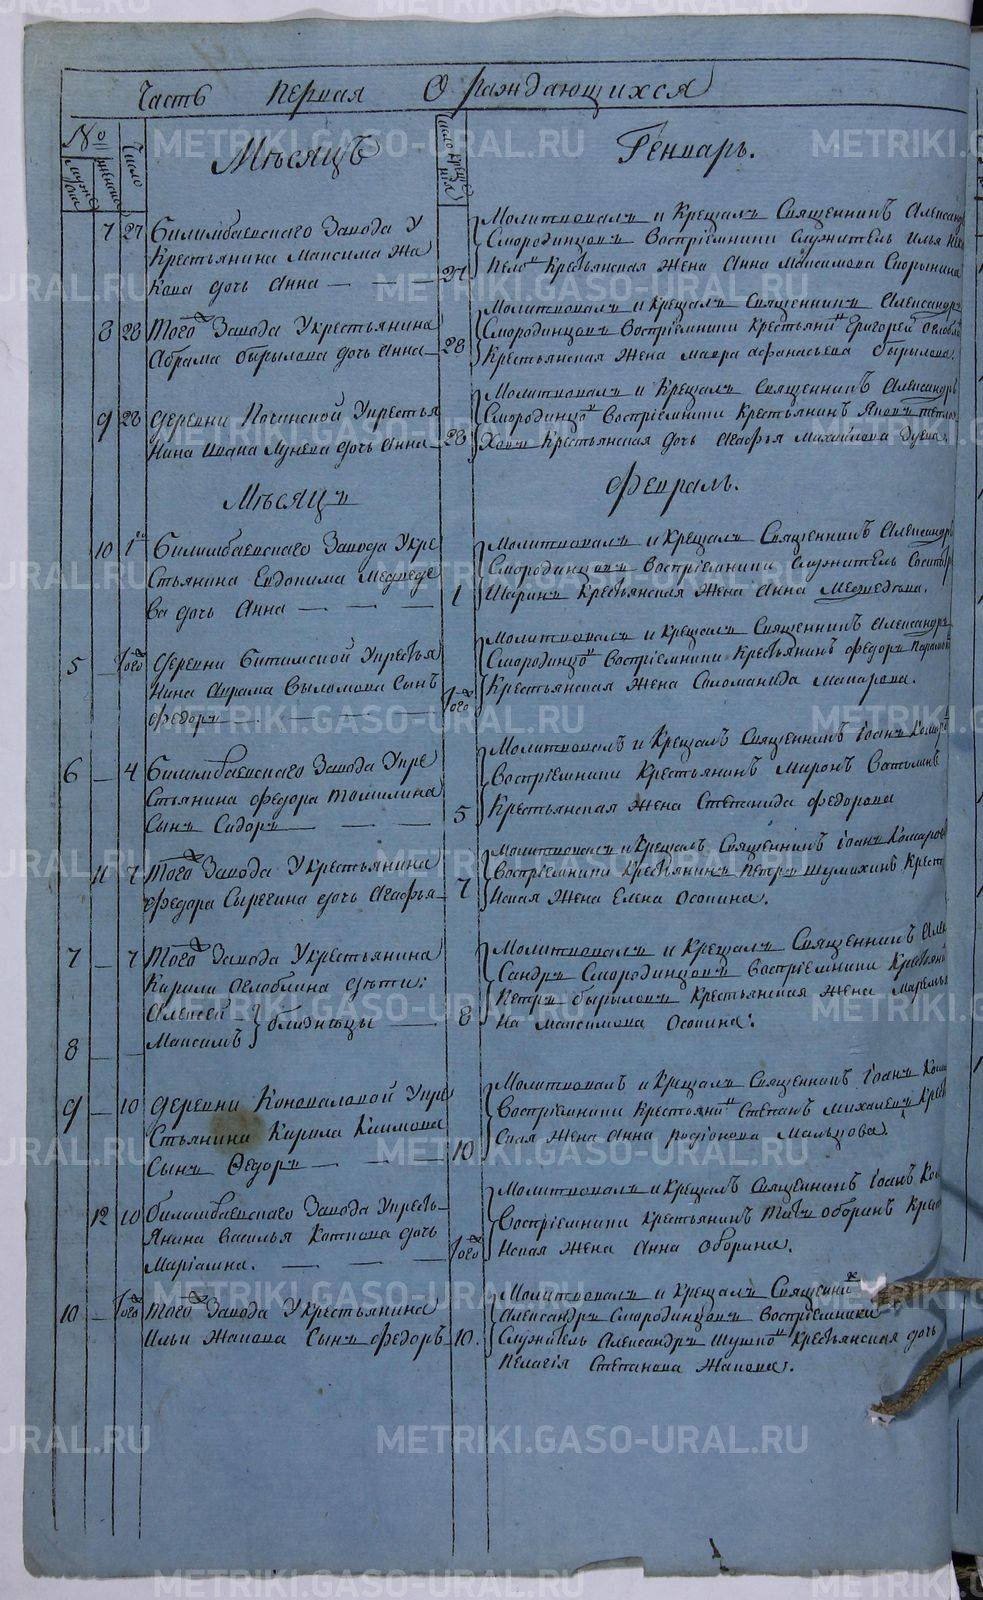 Часть первая О раждающихся
№
мужеска
женска
Число
Мѣсяцъ
Число крещения
Генварь.
7 27 Билимбаевскаго Завода У
Крестьянина Максима Жа
кова дочь Анна
27
Молитвовалъ и Крещалъ Священникъ Александръ
Смородинцовъ Воспріемники Служитель Илья
Крестьянская Жена Анна Максимова Скорынина
8 28 Того Завода У крестьянина
Абрама бырылова дочь Анна
28
Молитвовалъ и Крещалъ Священникъ Александръ
Смородинцовъ Воспріемники Крестьянинъ Григорей
Крестьянская Жена Мавра Афанасьева бырылова.
9 28 деревни Починской У крестья
нина Ивана Лунева дочь Анна
28
Молитвовалъ и Крещалъ Священникъ Александръ
Смородинцовъ Воспріемники Крестьянинъ Яковъ
Крестьянская дочь Агафья Михайлова
Мѣсяцъ
Февраль.
10 1го Билимбаевскаго Завода У кре
стьянина Евдокима Медведе
ва дочь Анна
1
Молитвовалъ и Крещалъ Священникъ Александръ
Смородинцовъ Воспріемники Служитель
Ширинъ Крестьянская Жена Анна Медведева.
5 Того деревни Битимской У крестья
нина Аврама Выломова Сынъ
федоръ
Того
Молитвовалъ и Крещалъ Священникъ Александръ
Смородинцовъ Воспріемники Крестьянинъ федоръ
Крестьянская Жена Саломанида Макарова.
6 4 Билимбаевскаго Завода У кре
стьянина федора Томилина
Сынъ Сидоръ
5
Молитвовалъ и Крещалъ Священникъ Iоаннъ Комаровъ
Воспріемники Крестьянинъ Миронъ Ватолинъ
Крестьянская Жена Степанида федорова
11 7 Того Завода У Крестьянина
федора Сырегина дочь Агафья
7
Молитвовалъ и Крещалъ Священникъ Iоаннъ Комаровъ
Воспріемники Крестьянинъ Петръ Шумихинъ Крестьян
ская Жена Елена Осокина.
7 7 Того Завода У крестьянина
Кирила Оглоблина дѣти:
Алексей
8 Максимъ } близнецы
8
Молитвовалъ и Крещалъ Священникъ Алек
сандръ Смородинцовъ Воспріемники Крестьянинъ
Петръ бырыловъ Крестьянская Жена Маремья
на Максимова Осокина:
9 10 деревни Коноваловой У кре
стьянина Кирила Климова
Сынъ Федоръ
10
Молитвовалъ и Крещалъ Священникъ Iоаннъ
Воспріемники Крестьянинъ Степанъ Михалевъ
ская Жена Анна родіонова Мальцова.
12 10 билимбаевскаго Завода У кресть
янина василья Коткова дочь
Маріамна.
Того
Молитвовалъ и Крещалъ Священникъ Iоаннъ
Воспріемники Крестьянинъ Титъ Оборинъ
ская Жена Анна Оборина.
10 Того Того Завода У крестьянина
Ильи Жакова Сынъ федоръ
10.
Молитвовалъ и Крещалъ Священникъ
Александръ Смородинцовъ Воспріемники
Служитель Александръ Шушковъ Крестьянская дочь
Пелагія Степанова Жакова.
METRIKI.GASO-URAL.RU